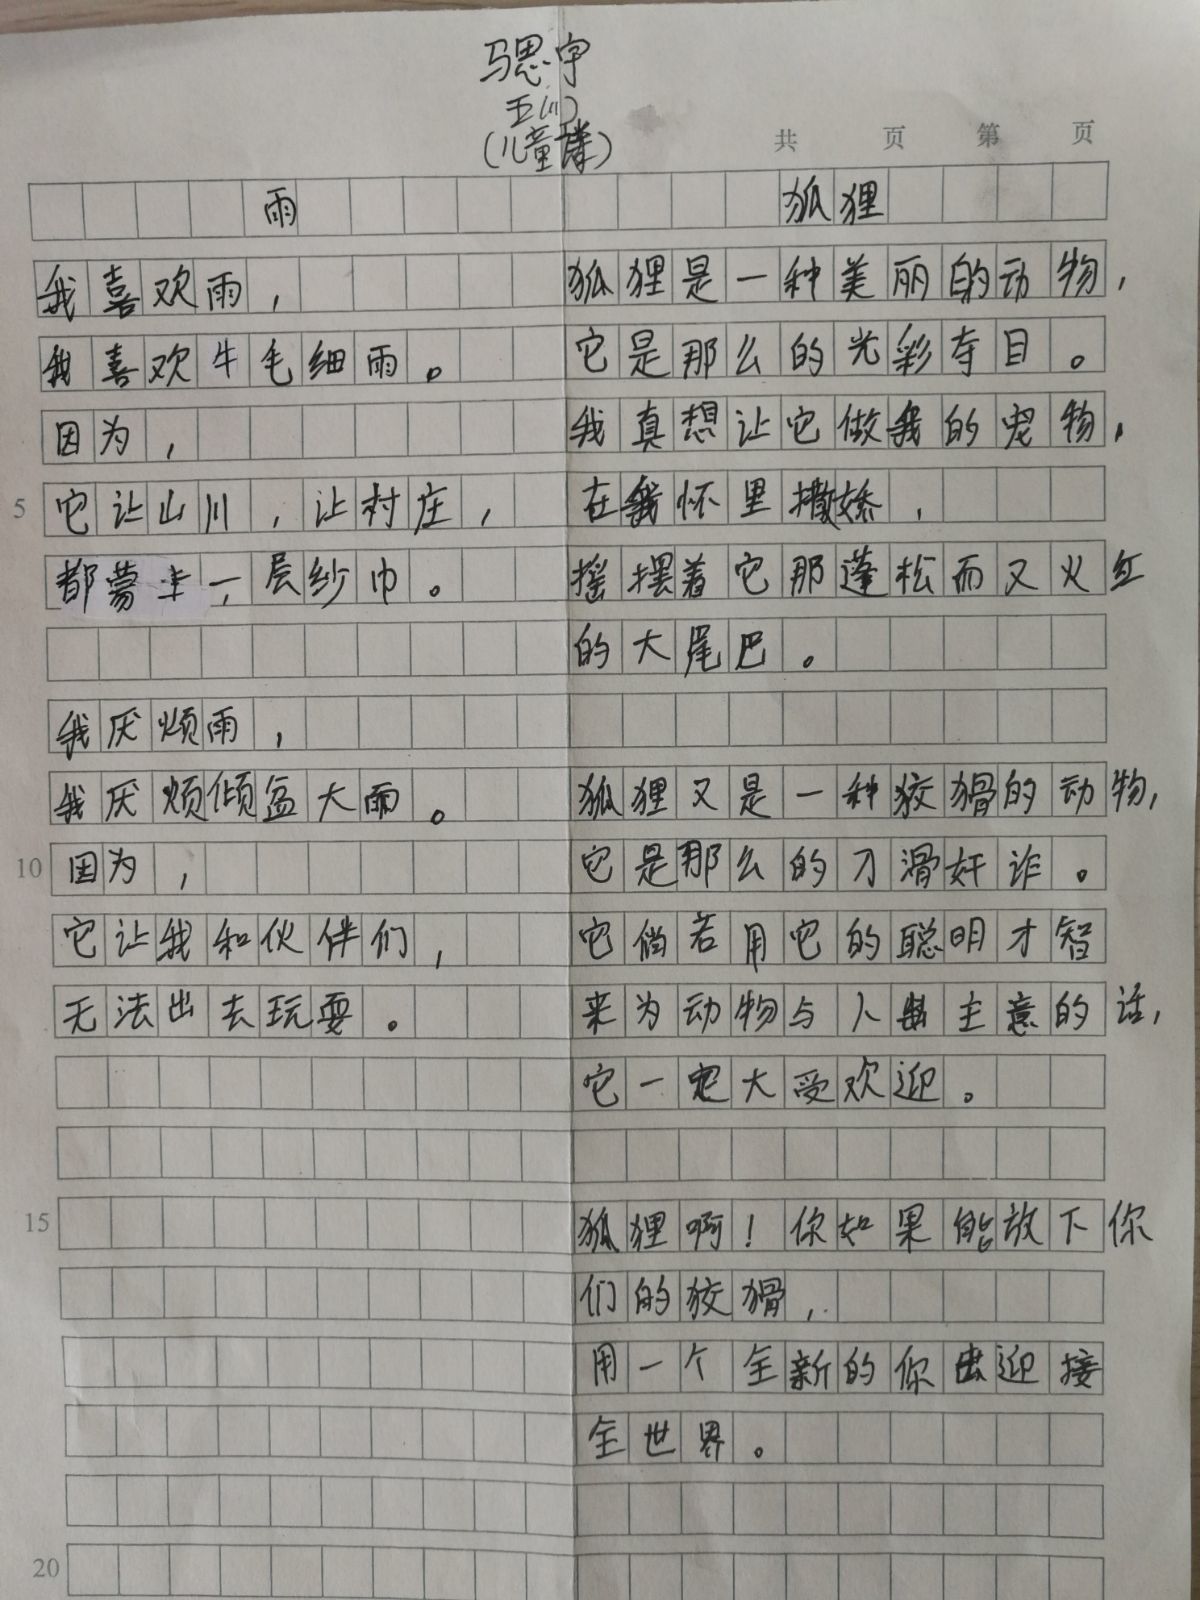 马思宇
五(1)
(儿童诗)
共 页 第 页
雨
我喜欢雨，
我喜欢牛毛细雨。
因为，
5 它让山川，让村庄，
都蒙上一层纱巾。
我厌烦雨，
我厌烦倾盆大雨。
10 因为，
它让我和伙伴们，
无法出去玩耍。
15
20
狐狸
狐狸是一种美丽的动物，
它是那么的光彩夺目。
我真想让它做我的宠物，
在我怀里撒娇，
摇摆着它那蓬松而又火红
的大尾巴。
狐狸又是一种狡猾的动物，
它是那么的刁滑奸诈。
它倘若用它的聪明才智
来为动物与人出主意的话，
它一定大受欢迎。
狐狸啊！你如果能放下你
们的狡猾，
用一个全新的你去迎接
全世界。